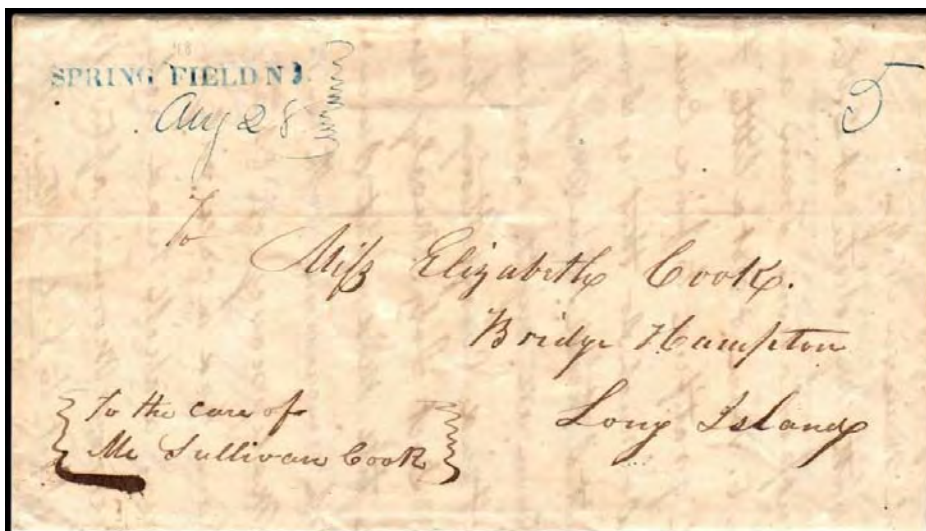 SPRING FIELD N J.
Aug 28
5
To
Miss Elizabeth Cook.
Bridge Hampton
Long Island
To the care of
Mr Sullivan Cook